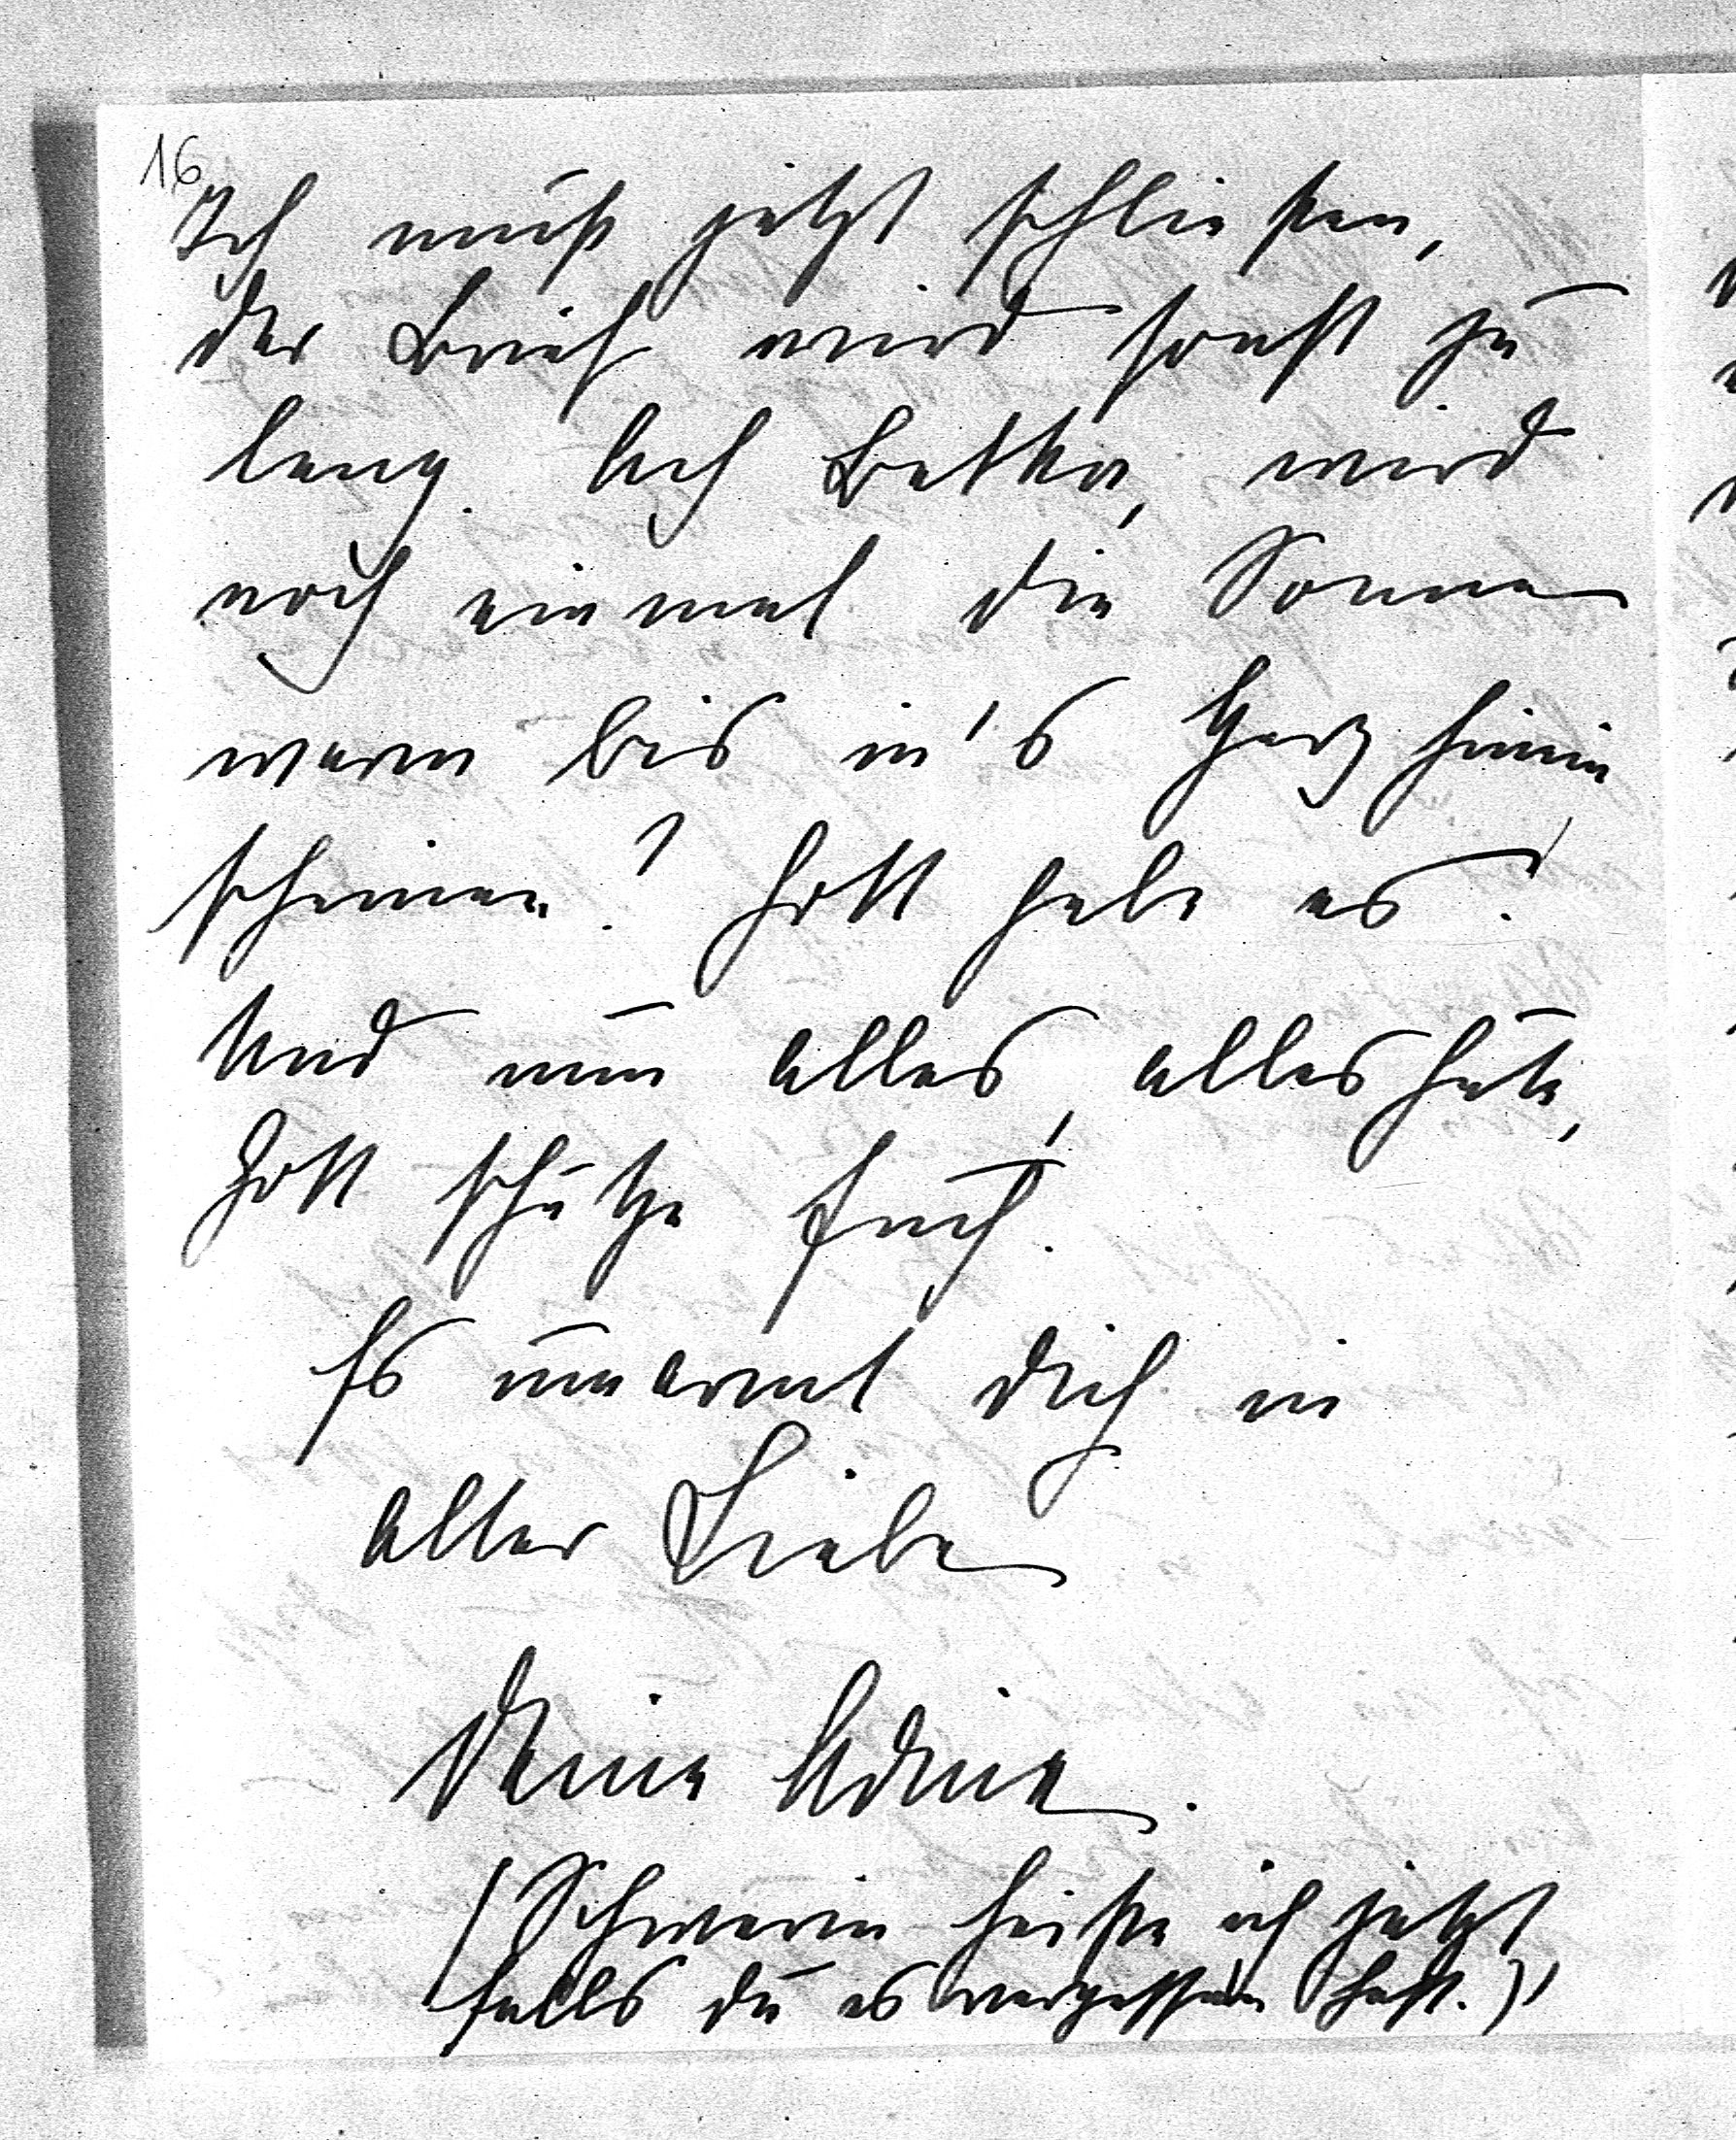 16
Ich muß jetzt schließen,
der Brief wird sonst zu
lang. Ach Betka, wird
noch einmal die Sonne
warm bis in's Herz hinein
scheinen? Gott gebe es!
Und nun alles, alles Gute,
Gott schütze Euch!
Es umarmt Dich in
alter Liebe
Deine Adine.
(Schwerin heiße ich jetzt
falls du es vergessen hast.)